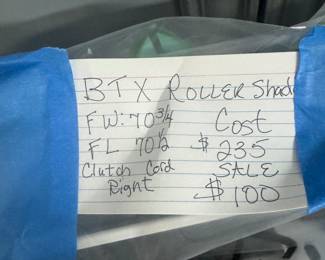 BTX ROLLER Shad
FW: 70 3/4
FL 70 1/2
Clutch Cord
Right
Cost
$ 235
SALE
$100